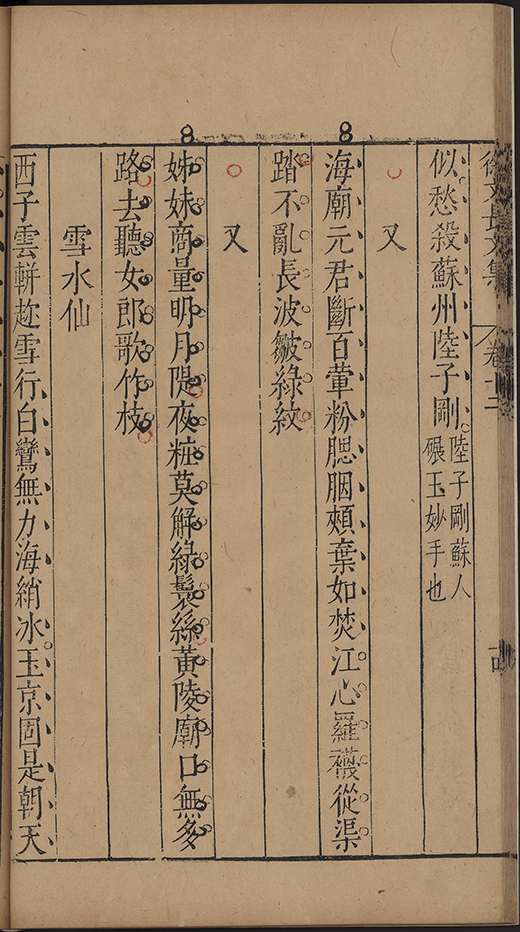 徐文長文集 卷十二
似愁殺蘇州陸子剛 陸子剛蘇人
碾玉妙手也
又
8
海廟元君斷百葷粉腮胭頰棄如焚江心羅襪從渠
踏不亂長波皺綠紋
又
8
姊妹商量明月隄夜粧莫解綠鬟絲黃陵廟口無多
路去聽女郎歌竹枝
雪水仙
西子雲輧趂雪行白鸞無力海綃冰玉京固是朝天